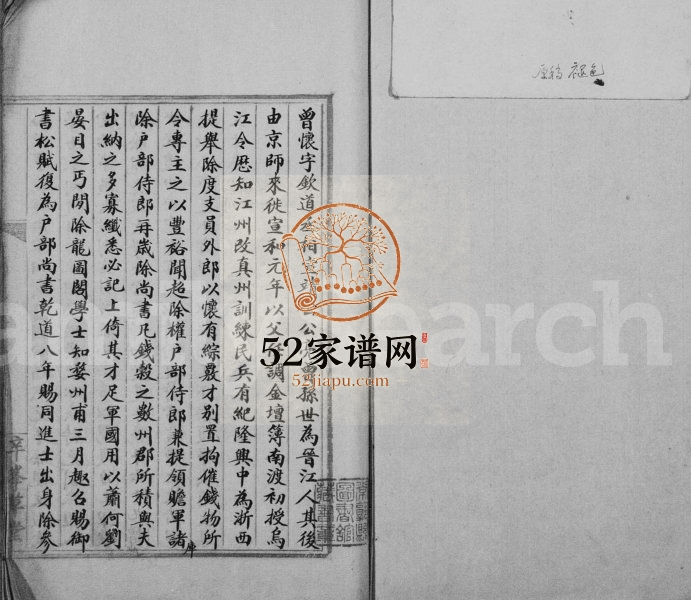 曾懷字欽道 公 孫世為晉江人其後
由京師來徙宣和元年以父 調金壇簿南渡初授烏
江令歷知江州改真州訓練民兵有紀隆興中為浙西
提舉除度支員外郎以懷有綜覈才別置拘催錢物所
令專主之以豐裕聞超除權戶部侍郎兼提領贍軍諸
庫
除戶部侍郎再歲除尚書凡錢穀之數州郡所積與夫
出納之多寡纖悉必記上倚其才足軍國用以蕭何劉
晏目之丐閒除龍圖閣學士知婺州甫三月趣召賜御
書松賦復為戶部尚書乾道八年賜同進士出身除參
原稿褪色
52家谱网
52jiapu.com
arch